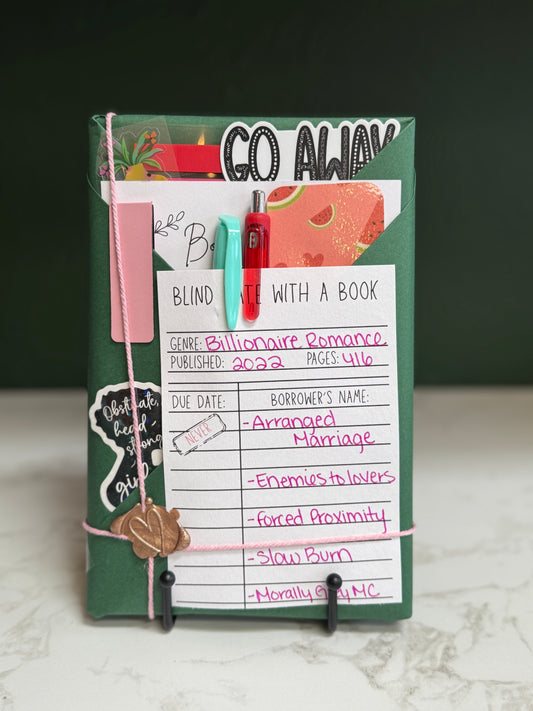 GO AWAY
B
BLIND DATE WITH A BOOK
GENRE: Billionaire Romance
PUBLISHED: 2022 PAGES: 416
DUE DATE: BORROWER'S NAME:
NEVER
-Arranged
Marriage
-Enemies to lovers
-Forced Proximity
-Slow Burn
-Morally Grey MC
Obstinate,
head
strong
girl